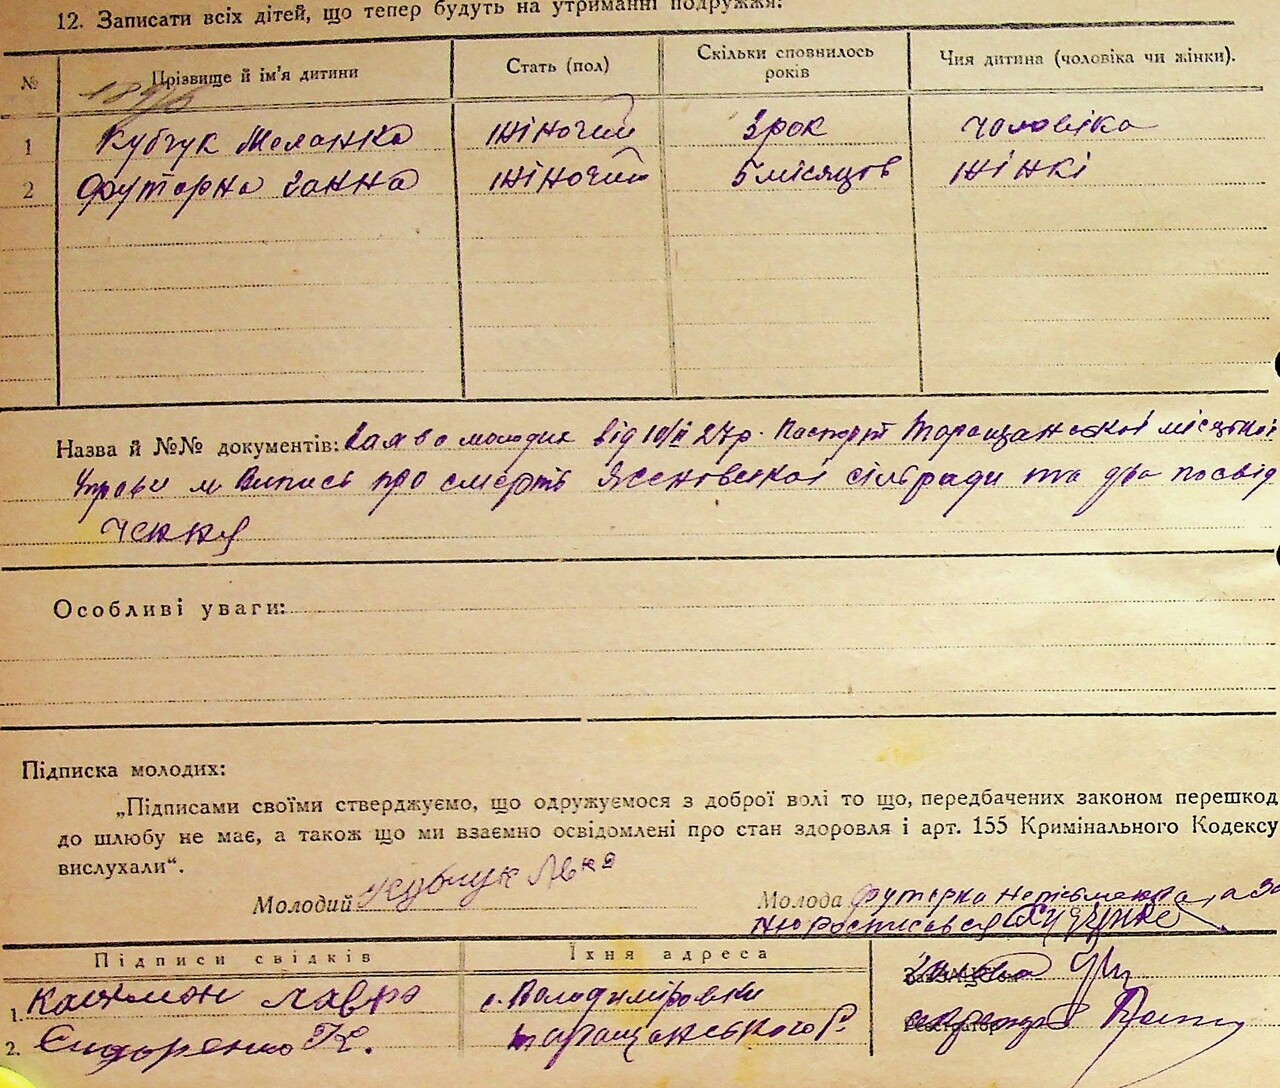 12. Записати всіх дітей, що тепер будуть на утриманні подружжя:
№ Прізвище й ім'я дитини Стать (пол) Скільки сповнилось років Чия дитина (чоловіка чи жінки).
1 Кубчук Меланка жіночий 3 рок чоловіка
2 Футорна Ганна жіночий 5 місяцов жінкі
Назва й №№ документів: Заява молодих від 10/II 27р. Паспорт Таращанської місцевої
Управи й Випись про смерть сільради та два посвід
чення
Особливі уваги:
Підписка молодих:
„Підписами своїми стверджуємо, що одружуємося з доброї волі то що, передбачених законом перешкод
до шлюбу не має, а також що ми взаємно освідомлені про стан здоровля і арт. 155 Кримінального Кодексу
вислухали“.
Молодий Кубчук
Молода Футорна неписьменна, а за
ню росписався
Підписи свідків Їхня адреса
1. Лавро с. Володимировки
2. Сидоренко К. Таращанського Р.